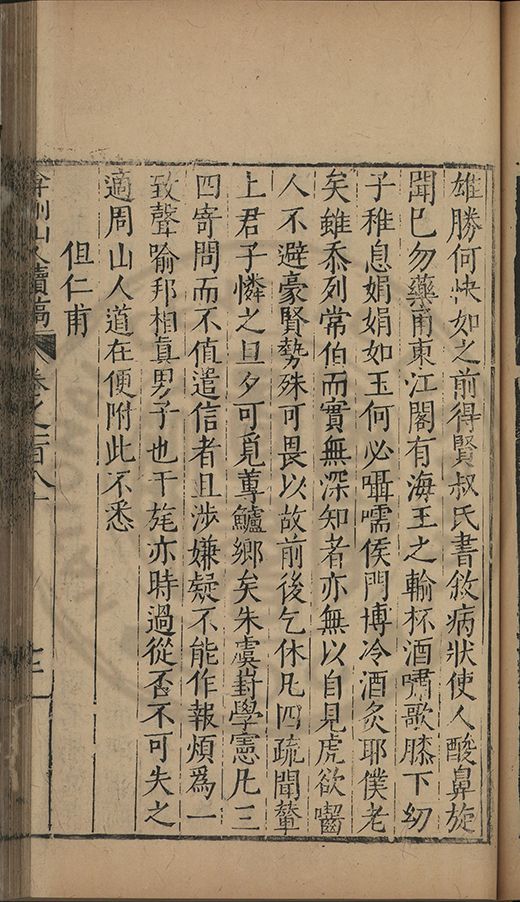 雄勝何快如之前得賢叔氏書敘病狀使人酸鼻旋
聞已勿藥甬東江閣有海王之輸杯酒嘯歌膝下幼
子稚息娟娟如玉何必囁嚅侯門博冷酒炙耶僕老
矣雖忝列常伯而實無深知者亦無以自見虎欲嚙
人不避豪賢勢殊可畏以故前後乞休凡四疏聞輦
上君子憐之旦夕可覓蓴鱸鄉矣朱虞葑學憲凡三
四寄問而不值遣信者且涉嫌疑不能作報煩為一
致聲喻邦相真男子也干旄亦時過從否不可失之
適周山人道在便附此不悉
但仁甫
弇州山人續稿 卷之一百八十